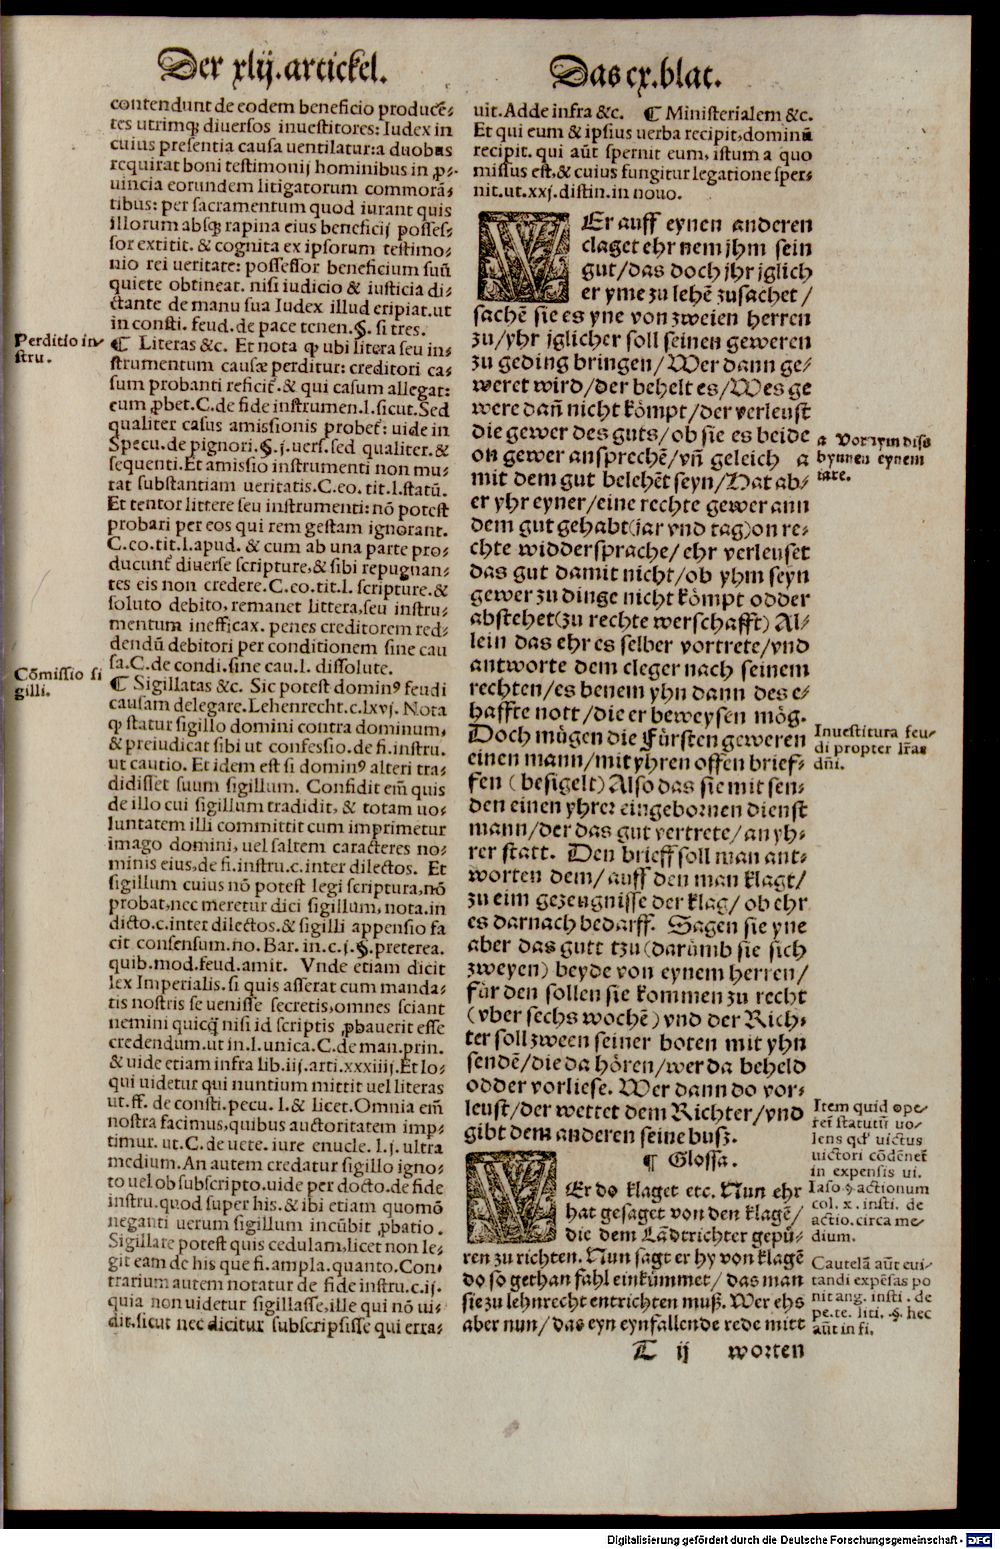 Der xlij.artickel.
Das cx.blat.
contendunt de eodem beneficio producē⸗
tes utrimq; diuersos inuestitores: Iudex in
cuius presentia causa uentilatur: a duobus
requirat boni testimonij hominibus in ꝓ⸗
uincia eorundem litigatorum commorā⸗
tibus: per sacramentum quod iurant quis
illorum absq; rapina eius beneficij posses⸗
sor extitit. & cognita ex ipsorum testimo⸗
nio rei ueritate: possessor beneficium suū
quiete obtineat. nisi iudicio & iusticia di⸗
ctante de manu sua Iudex illud eripiat. ut
in consti. feud. de pace tenen. §. si tres.
¶ Literas &c. Et nota ꝙ ubi litera seu in⸗
strumentum causæ perditur: creditori ca⸗
sum probanti reficit᷑. & qui casum allegat:
eum ꝓbet. C. de fide instrumen. l. sicut. Sed
qualiter casus amissionis probet᷑: uide in
Specu. de pignori. §. j. uers. sed qualiter. &
sequenti. Et amissio instrumenti non mu⸗
tat substantiam ueritatis. C. eo. tit. l. statū.
Et tentor littere seu instrumenti: nō potest
probari per eos qui rem gestam ignorant.
C. co. tit. l. apud. & cum ab una parte pro⸗
ducunt᷑ diuerse scripture, & sibi repugnan⸗
tes eis non credere. C. co. tit. l. scripture. &
soluto debito, remanet littera, seu instru⸗
mentum inefficax. penes creditorem red⸗
dendū debitori per conditionem sine cau
sa. C. de condi. sine cau. l. dissolute.
¶ Sigillatas &c. Sic potest dominꝰ feudi
causam delegare. Lehenrecht. c. lxvj. Nota
ꝙ statur sigillo domini contra dominum,
& preiudicat sibi ut confessio. de fi. instru.
ut cautio. Et idem est si dominꝰ alteri tra⸗
didisset suum sigillum. Confidit em̄ quis
de illo cui sigillum tradidit, & totam uo⸗
luntatem illi committit cum imprimetur
imago domini, uel saltem caracteres no⸗
minis eius, de fi. instru. c. inter dilectos. Et
sigillum cuius nō potest legi scriptura, nō
probat, nec meretur dici sigillum, nota. in
dicto. c. inter dilectos. & sigilli appensio fa
cit consensum. no. Bar. in. c. j. §. preterea.
quib. mod. feud. amit. Vnde etiam dicit
lex Imperialis. si quis asserat cum manda⸗
tis nostris se uenisse secretis, omnes sciant
nemini quicq̄ nisi id scriptis ꝓbauerit esse
credendum. ut in. l. unica. C. de man. prin.
& uide etiam infra lib. iij. arti. xxxiiij. Et lo⸗
qui uidetur qui nuntium mittit uel literas
ut. ff. de consti. pecu. l. & licet. Omnia em̄
nostra facimus, quibus auctoritatem imp⸗
timur. ut. C. de uete. iure enucle. l. j. ultra
medium. An autem credatur sigillo igno⸗
to uel ob subscripto. uide per docto. de fide
instru. quod super his. & ibi etiam quomō
neganti uerum sigillum incūbit ꝓbatio.
Sigillare potest quis cedulam, licet non le⸗
git eam de his que fi. ampla. quanto. Con⸗
trarium autem notatur de fide instru. c. ij.
quia non uidetur sigillasse, ille qui nō ui⸗
dit. sicut nec dicitur subscripsisse qui erra⸗
Perditio in⸗
stru.
Cōmissio si
gilli.
uit. Adde infra &c. ¶ Ministerialem &c.
Et qui eum & ipsius uerba recipit, dominū
recipit. qui aūt spernit eum, istum a quo
missus est, & cuius fungitur legatione sper⸗
nit. ut. xxj. distin. in nouo.
WEr auff eynen anderen
claget ehr nem jhm sein
gut/das doch jhr jglich
er yme zu lehē zusachet/
sachē sie es yne von zweien herren
zu/yhr jglicher soll seinen geweren
zu geding bringen/Wer dann ge⸗
weret wird/der behelt es/Wes ge
were dañ nicht kömpt/der verleust
die gewer des guts/ob sie es beide
on gewer ansprechē/vñ geleich a
mit dem gut belehēt seyn/Hat ab⸗
er yhr eyner/eine rechte gewer ann
dem gut gehabt(jar vnd tag)on re⸗
chte widdersprache/ehr verleuset
das gut damit nicht/ob yhm seyn
gewer zu dinge nicht kömpt odder
abstehet(zu rechte werschafft) Al⸗
lein das ehr es selber vortrete/vnd
antworte dem cleger nach seinem
rechten/es benem yhn dann des e⸗
haffte nott/die er beweysen mög.
Doch mügen die Fürsten geweren
einen mann/mit yhren offen brief⸗
fen (besigelt) Also das sie mit sen⸗
den einen yhrer eingebornen dienst
mann/der das gut vertrete/an yh⸗
rer statt. Den brieff soll man ant⸗
worten dem/auff den man klagt/
zu eim gezeugnisse der klag/ob ehr
es darnach bedarff. Sagen sie yne
aber das gutt tzu(darümb sie sich
zweyen) beyde von eynem herren/
für den sollen sie kommen zu recht
(vber sechs wochē) vnd der Rich⸗
ter soll zween seiner boten mit yhn
sendē/die da hören/wer da beheld
odder vorliese. Wer dann do vor⸗
leust/der wettet dem Richter/vnd
gibt dem anderen seine busz.
¶ Glossa.
WEr do klaget etc. Nun ehr
hat gesaget von den klagē/
die dem Lādtrichter gepü⸗
ren zu richten. Nun sagt er hy von klagē
do so gethan fahl einkümmet/das man
sie zu lehnrecht entrichten muß. Wer ehs
aber nun/das eyn eynfallende rede mitt
T ij worten
a Vor ym diss
bynnen eynem
tare.
Inuestitura feu⸗
di propter lr̄as
dn̄i.
Item quid ope⸗
ret᷑ statutū uo⸗
lens qd' uictus
uictori cōdēnet᷑
in expensis ui.
Iaso ꝭ actionum
col. x. insti. de
actio. circa me⸗
dium.
Cautelā aūt eui⸗
tandi expēsas po
nit ang. insti. de
pe. te. liti. §. hec
aūt in fi.
Digitalisierung gefördert durch die Deutsche Forschungsgemeinschaft - DFG